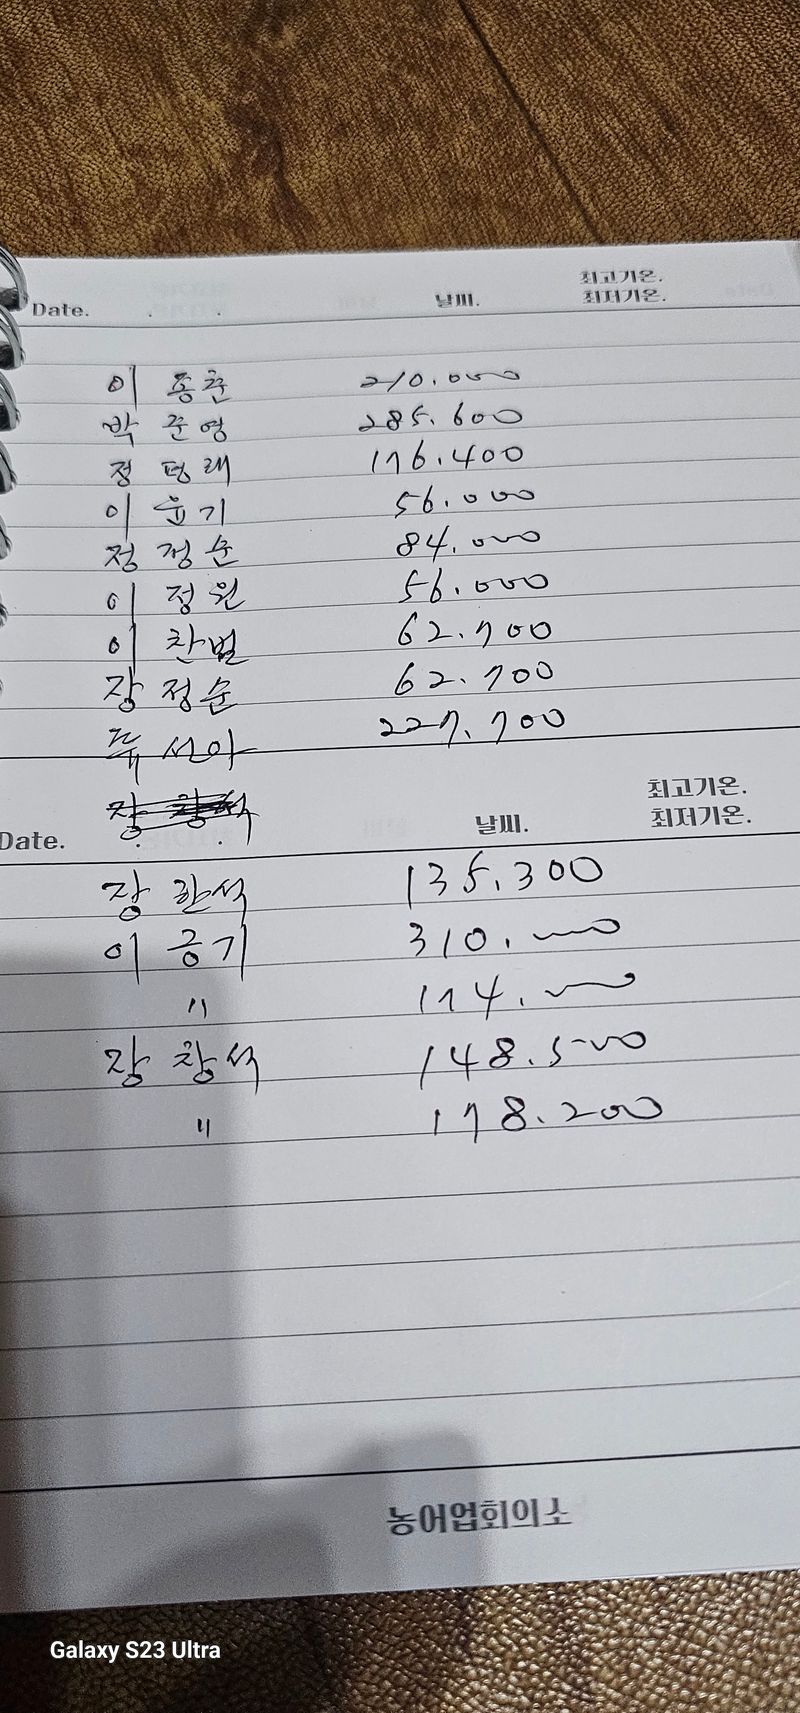 최고기온.
Date. . . 날씨. 최저기온.
이 종훈 210.000
박 준영 285.600
정 평래 176.400
이 윤기 56.000
정 정순 84.000
이 정원 56.000
이 찬범 62.700
장 정순 62.700
선아 227.700
최고기온.
Date. . . 날씨. 최저기온.
장 한석 135.300
이 긍기 310.000
〃 174.000
장 창석 148.500
〃 178.200
농어업회의소
Galaxy S23 Ultra